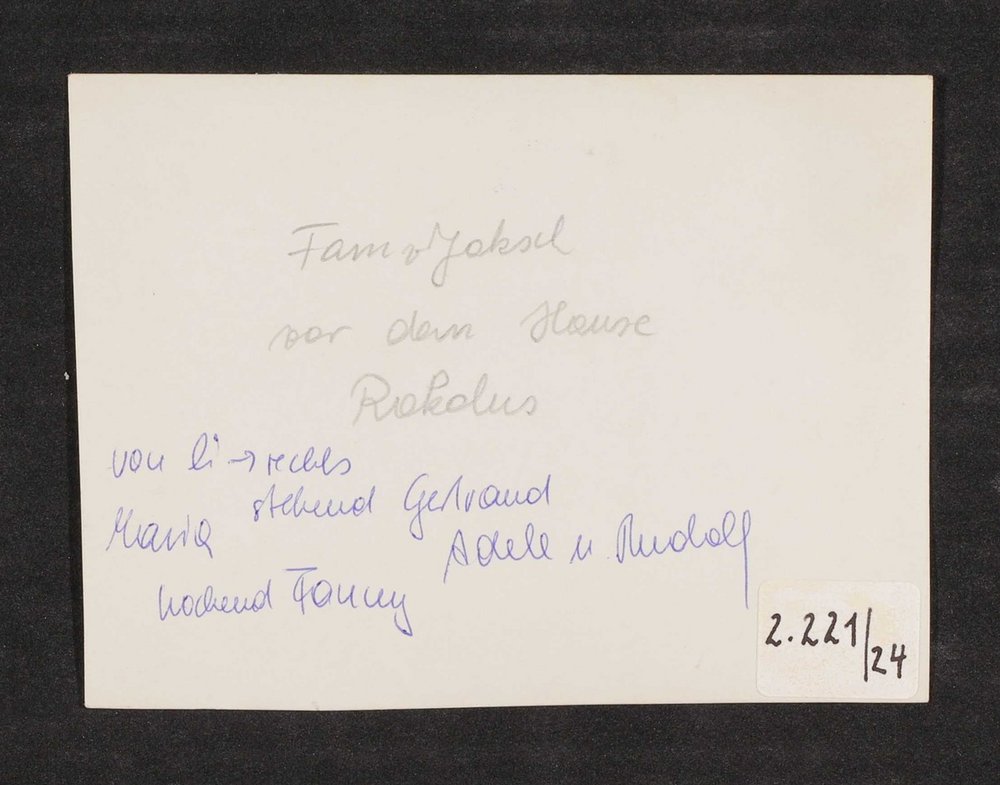 Fam v Jaksch
vor dem Hause
Rokolus
von li → rechts
stehend Gertraud
Maria
Adele u. Rudolf
hockend Fanny
2.221/24